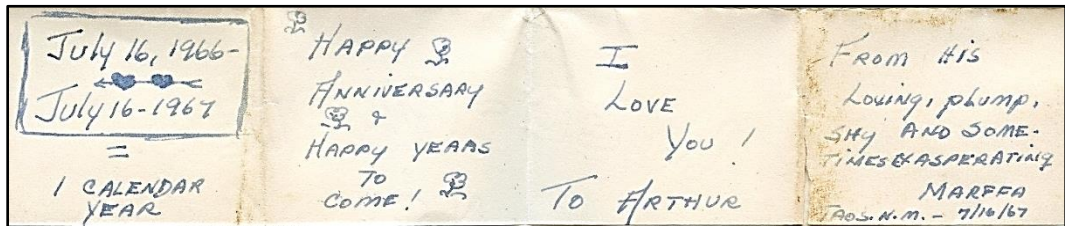 July 16, 1966-
July 16-1967
=
1 CALENDAR
YEAR
HAPPY
ANNIVERSARY
&
HAPPY YEARS
TO
COME!
I
LOVE
YOU!
TO ARTHUR
FROM HIS
Loving, plump,
SHY AND SOME-
TIMES EXASPERATING
MARFFA
TAOS. N.M. - 7/16/67